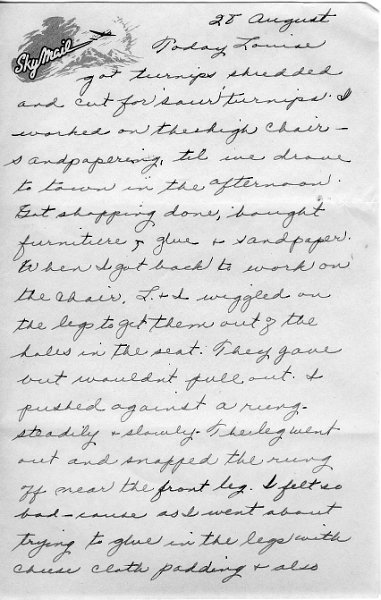 Sky Mail
28 August
Today Louise
got turnips shredded
and cut for 'sour' turnips. I
worked on the high chair -
sandpapering, til we drove
to town in the afternoon.
Got shopping done, bought
furniture glue + sandpaper.
When I got back to work on
the chair, L. + I wiggled on
the legs to get them out of the
holes in the seat. They gave
but wouldn't pull out. I
pushed against a rung -
steadily + slowly. The leg went
out and snapped the rung
off near the front leg. I felt so
bad - cause as I went about
trying to glue in the legs with
cheese cloth padding + also